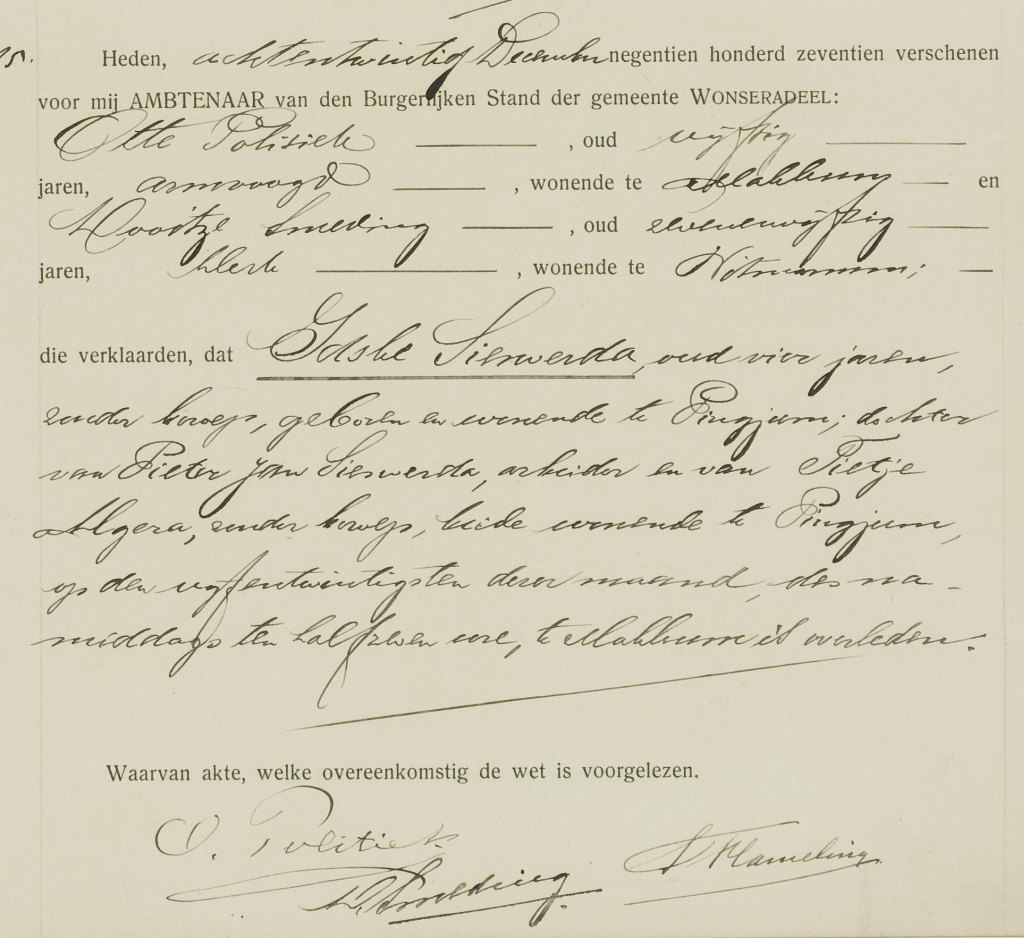 Heden, achtentwintig December negentien honderd zeventien verschenen
voor mij AMBTENAAR van den Burgerlijken Stand der gemeente WONSERADEEL:
Otte Politiek , oud vijftig
jaren, armvoogd , wonende te Makkum en
Smeding , oud zevenenvijftig
jaren, klerk , wonende te Witmarsum;
die verklaarden, dat Ietske Sierwerda, oud vier jaren,
zonder beroep, geboren en wonende te Pingjum; dochter
van Pieter Jan Sierwerda, arbeider en van Tietje
Algera, zonder beroep, beide wonende te Pingjum,
op den vijfentwintigsten dezer maand, des na-
middags ten half zeven ure, te Makkum is overleden.
Waarvan akte, welke overeenkomstig de wet is voorgelezen.
O. Politiek
Smeding
Flameling